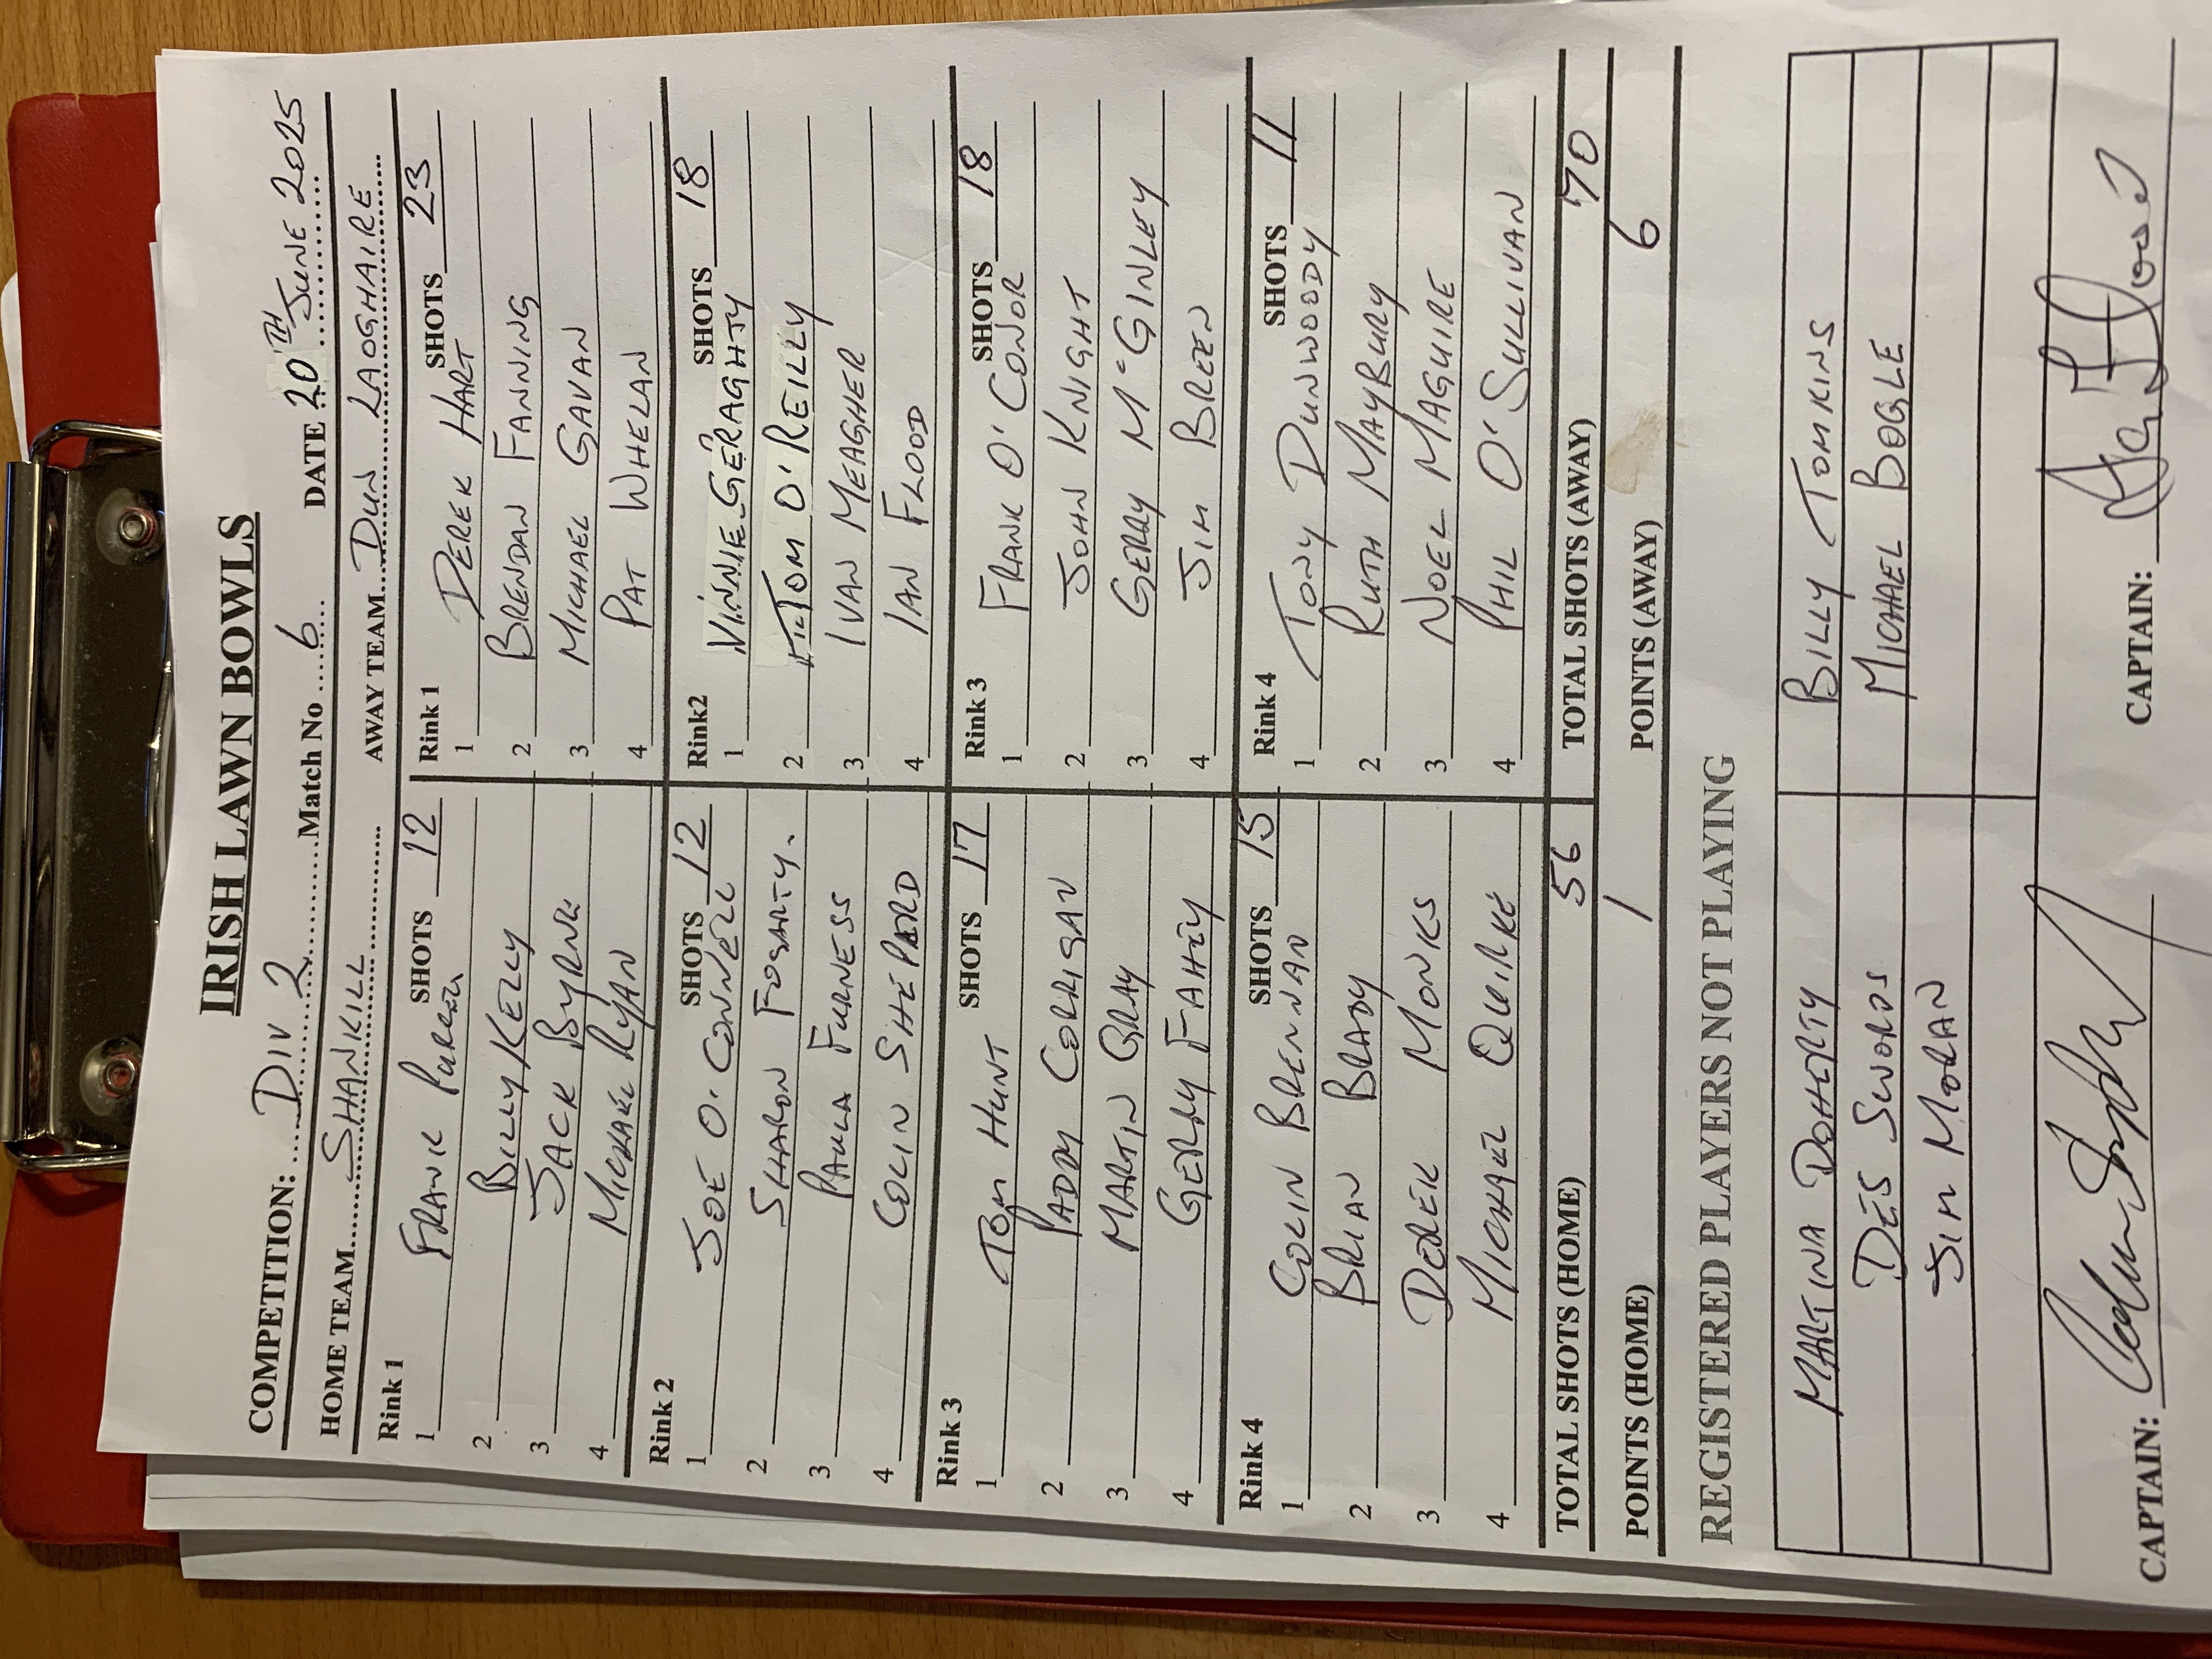 IRISH LAWN BOWLS
COMPETITION: DIV 2 Match No 6 DATE 20TH JUNE 2025
HOME TEAM SHANKILL AWAY TEAM DUN LAOGHAIRE
Rink 1 SHOTS 12 Rink 1 SHOTS 23
1 FRANK PURCELL 1 DEREK HART
2 BILLY KELLY 2 BRENDAN FANNING
3 JACK BYRNE 3 MICHAEL GAVAN
4 MICHAEL RYAN 4 PAT WHELAN
Rink 2 SHOTS 12 Rink2 SHOTS 18
1 JOE O'CONNELL 1 VINNIE GERAGHTY
2 SHARON FOGARTY. 2 TOM O'REILLY
3 PAULA FURNESS 3 IVAN MEAGHER
4 COLIN SHEPPARD 4 IAN FLOOD
Rink 3 SHOTS 17 Rink 3 SHOTS 18
1 TOM HUNT 1 FRANK O'CONOR
2 PADDY CORRIGAN 2 JOHN KNIGHT
3 MARTIN GRAY 3 GERRY McGINLEY
4 GERRY FAHEY 4 JIM BREEN
Rink 4 SHOTS 15 Rink 4 SHOTS 11
1 COLIN BRENNAN 1 TONY DUNWOODY
2 BRIAN BRADY 2 RUTH MAYBURY
3 DEREK MONKS 3 NOEL MAGUIRE
4 MICHAEL QUIRKE 4 PHIL O'SULLIVAN
TOTAL SHOTS (HOME) 56 TOTAL SHOTS (AWAY) 70
POINTS (HOME) 1 POINTS (AWAY) 6
REGISTERED PLAYERS NOT PLAYING
MARTINA DOHERTY BILLY TOMKINS
DES SWORDS MICHAEL BOGLE
JIM MORAN
CAPTAIN: CAPTAIN: